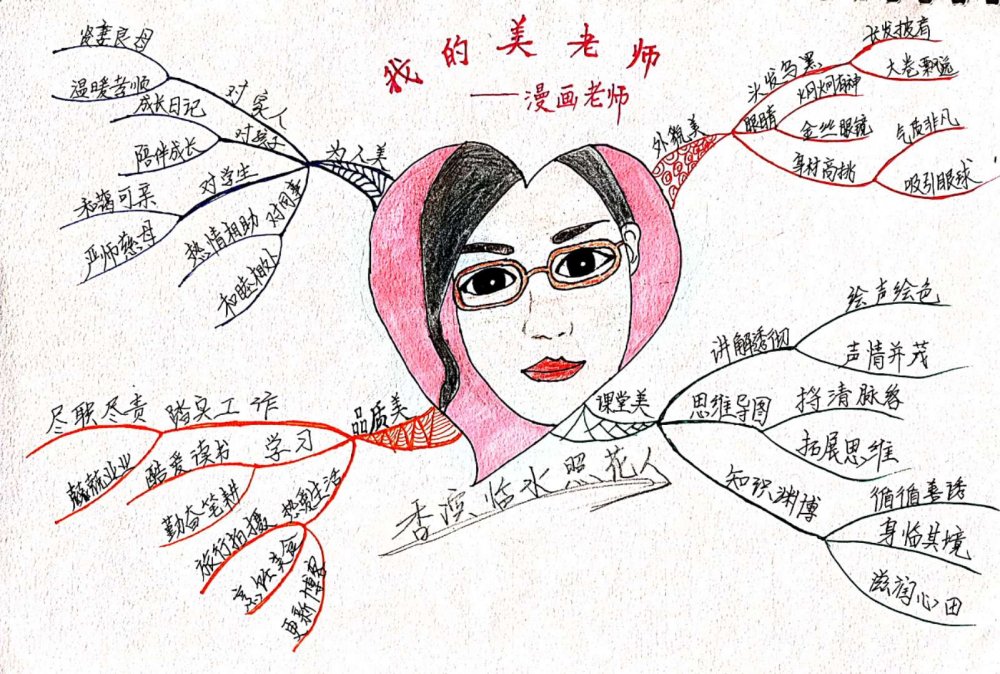 我的美老师
——漫画老师
为人美
对家人
贤妻良母
温暖孝顺
对孩子
成长日记
陪伴成长
对学生
和蔼可亲
严师慈母
对同事
热情相助
和睦相处
外貌美
头发乌黑
长发披肩
大卷飘逸
眼睛
炯炯有神
金丝眼镜
身材高挑
气质非凡
吸引眼球
课堂美
讲解透彻
绘声绘色
声情并茂
思维导图
捋清脉络
拓展思维
知识渊博
循循善诱
身临其境
滋润心田
品质美
踏实工作
尽职尽责
兢兢业业
学习
酷爱读书
勤奋笔耕
热爱生活
旅行拍摄
烹饪美食
更新博客
临水照花人